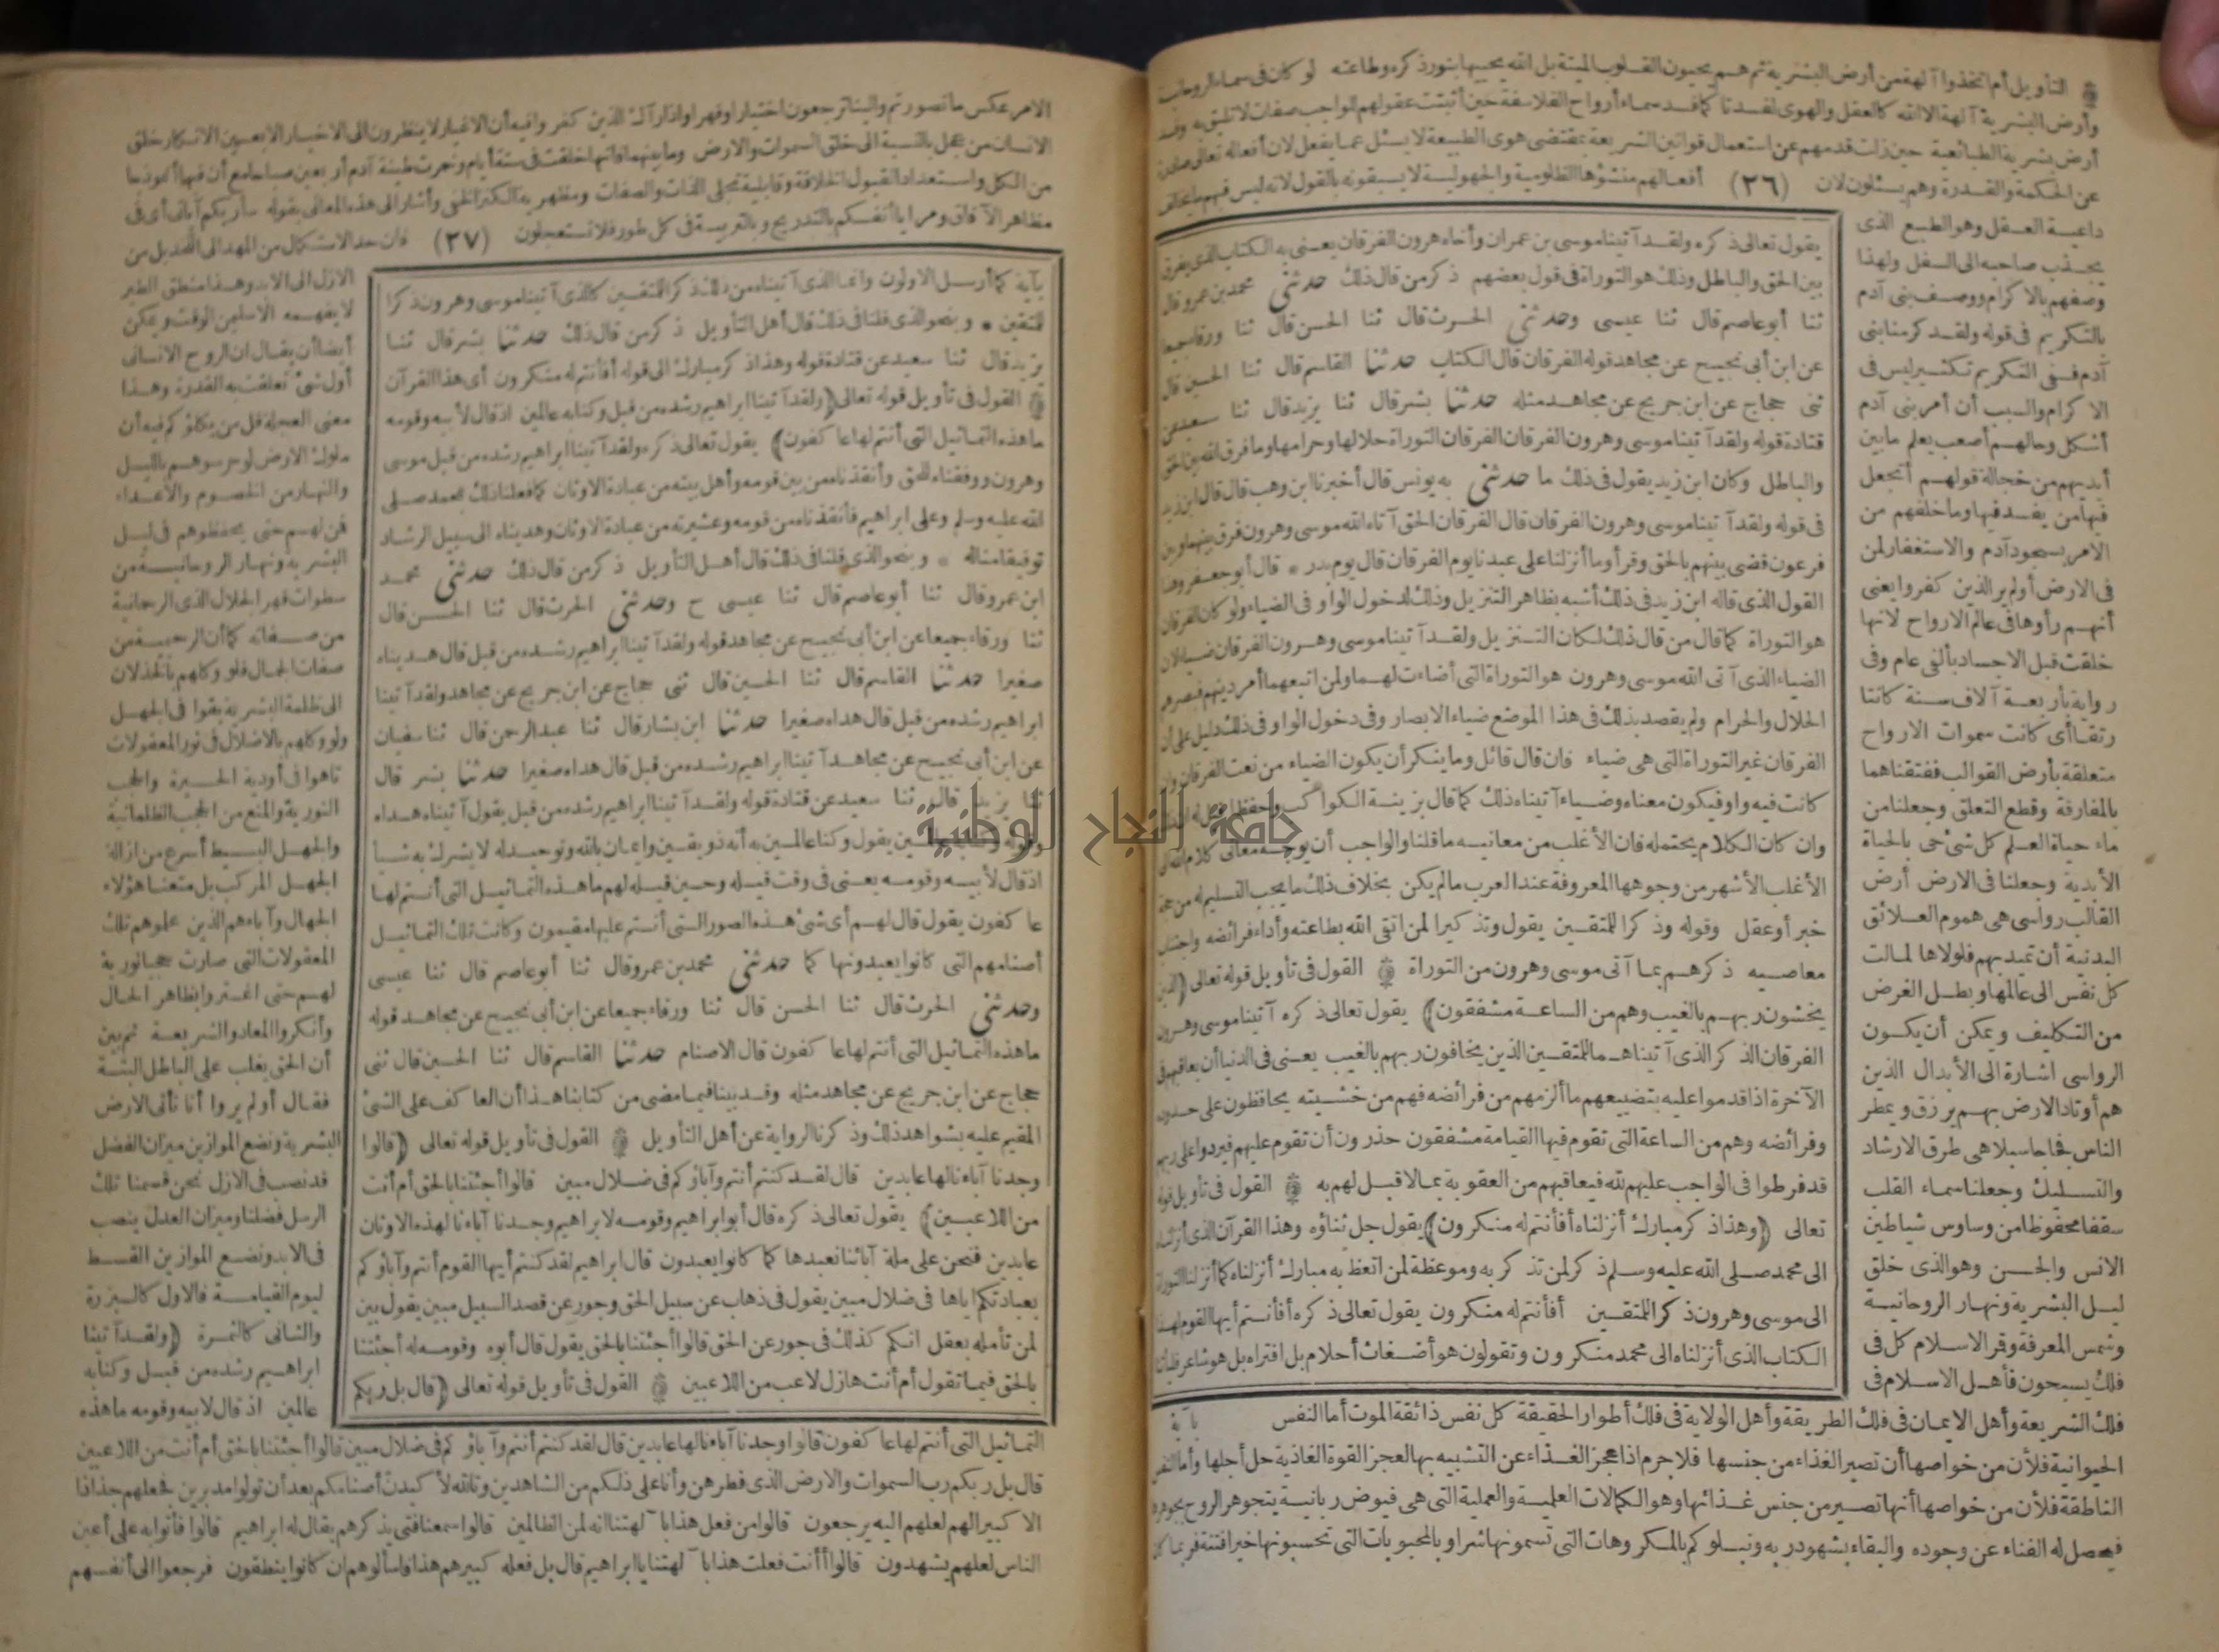 التأويل أم اتخذوا آلهة من أرض البشرية هم يحيون القلوب الميتة بل الله يحييها بنور ذكره وطاعته لو كان في سماء الروحانية
وأرض البشرية آلهة الا الله كالعقل والهوى لفسدتا كما فسد سماء أرواح الفلاسفة حين أثبتت عقولهم الواجب صفات لا تليق به
أرض بشرية الطبائعية حين زلت قدمهم عن استعمال قوانين الشريعة بمقتضى هوى الطبيعة لا يسئل عما يفعل لان أفعاله تعالى صادرة
عن الحكمة والقدرة وهم يسئلون لان (٣٦) أفعالهم منشؤها الظلومية والجهولية لا يسبقونه بالقول لانه ليس فيهم ما يخالف
داعية العقل وهو الطبع الذى
يجذب صاحبه الى السفل ولهذا
وصفهم بالاكرام ووصف بنى آدم
بالتكريم فى قوله ولقد كرمنا بنى
آدم ففى التكريم تكثير ليس فى
الاكرام والسبب أن أمر بنى آدم
أشكل وحالهم أصعب يعلم ما بين
أيديهم من خجالة قولهم أتجعل
فيها من يفسد فيها وما خلفهم من
الامر بسجود آدم والاستغفار لمن
فى الارض أولم ير الذين كفروا يعنى
أنهم رأوها فى عالم الارواح لانها
خلقت قبل الاجساد بألفى عام وفى
رواية بأربعة آلاف سنة كانتا
رتقا أى كانت سموات الارواح
متعلقة بأرض القوالب ففتقناهما
بالمفارقة وقطع التعلق وجعلنا من
ماء حياة العلم كل شئ حى بالحياة
الأبدية وجعلنا فى الارض أرض
القالب رواسى هى هموم العلائق
البدنية أن تميد بهم فلولاها لمالت
كل نفس الى عالمها وبطل الغرض
من التكليف ويمكن أن يكون
الرواسى اشارة الى الأبدال الذين
هم أوتاد الارض بهم يرزق ويمطر
الناس فجاجا سبلا هى طرق الارشاد
والتسليك وجعلنا سماء القلب
سقفا محفوظا من وساوس شياطين
الانس والجن وهو الذى خلق
ليل البشرية ونهار الروحانية
وشمس المعرفة وقر الاسلام كل فى
فلك يسبحون فأهل الاسلام فى
يقول تعالى ذكره ولقد آتينا موسى بن عمران وأخاه هرون الفرقان يعنى به الكتاب الذى يفرق
بين الحق والباطل وذلك هو التوراة فى قول بعضهم ذكر من قال ذلك حدثنى محمد بن عمرو قال
ثنا أبو عاصم قال ثنا عيسى وحدثنى الحرث قال ثنا الحسن قال ثنا ورقاء جميعا
عن ابن أبى نجيح عن مجاهد قوله الفرقان قال الكتاب حدثنا القاسم قال ثنا الحسين قال
ثنى حجاج عن ابن جريج عن مجاهد مثله حدثنا بشر قال ثنا يزيد قال ثنا سعيد عن
قتادة قوله ولقد آتينا موسى وهرون الفرقان الفرقان التوراة حلالها وحرامها وما فرق الله بين الحق
والباطل وكان ابن زيد يقول فى ذلك ما حدثنى به يونس قال أخبرنا ابن وهب قال قال ابن زيد
فى قوله ولقد آتينا موسى وهرون الفرقان قال الفرقان الحق آتاه الله موسى وهرون فرق بينهما وبين
فرعون فقضى بينهم بالحق وقرأ وما أنزلنا على عبدنا يوم الفرقان قال يوم بدر * قال أبو جعفر وهذا
القول الذى قاله ابن زيد فى ذلك أشبه بظاهر التنزيل وذلك لدخول الواو فى الضياء ولو كان الفرقان
هو التوراة كما قال من قال ذلك لكان التنزيل ولقد آتينا موسى وهرون الفرقان ضياء لان
الضياء الذى آتى الله موسى وهرون هو التوراة التى أضاءت لهما ولمن اتبعهما أمر دينهم فبصرهم
الحلال والحرام ولم يقصد بذلك فى هذا الموضع ضياء الابصار وفى دخول الواو فى ذلك دليل على أن
الفرقان غير التوراة التى هى ضياء فان قال قائل وما ينكر أن يكون الضياء من نعت الفرقان وان
كانت فيه واو فيكون معناه وضياء آتيناه ذلك كما قال بزينة الكواكب وحفظا قيل له
وان كان الكلام يحتمله فان الأغلب من معانيه ما قلنا والواجب أن يوجه معانى كلام الله الى
الأغلب الأشهر من وجوهها المعروفة عند العرب ما لم يكن بخلاف ذلك ما يجب التسليم له من حجة
خبر أو عقل وقوله وذكرا للمتقين يقول وتذكيرا لمن اتقى الله بطاعته وأداء فرائضه واجتناب
معاصيه ذكرهم بما آتى موسى وهرون من التوراة القول فى تأويل قوله تعالى (الذين
يخشون ربهم بالغيب وهم من الساعة مشفقون) يقول تعالى ذكره آتينا موسى وهرون
الفرقان الذكر الذى آتيناهما للمتقين الذين يخافون ربهم بالغيب يعنى فى الدنيا أن يعاقبهم فى
الآخرة اذا قدموا عليه بتضييعهم ما ألزمهم من فرائضه فهم من خشيته يحافظون على حدوده
وفرائضه وهم من الساعة التى تقوم فيها القيامة مشفقون حذرون أن تقوم عليهم فيردوا على ربهم
قد فرطوا فى الواجب عليهم لله فيعاقبهم من العقوبة بما لا قبل لهم به القول فى تأويل قوله
تعالى (وهذا ذكر مبارك أنزلناه أفأنتم له منكرون) يقول جل ثناؤه وهذا القرآن الذى أنزلناه
الى محمد صلى الله عليه وسلم ذكر لمن تذكر به وموعظة لمن اتعظ به مبارك أنزلناه كما أنزلنا التوراة
الى موسى وهرون ذكرا للمتقين أفأنتم له منكرون يقول تعالى ذكره أفأنتم أيها القوم لهذا
الكتاب الذى أنزلناه الى محمد منكرون وتقولون هو أضغاث أحلام بل افتراه بل هو شاعر فليأتنا
بآية
فلك الشريعة وأهل الايمان فى فلك الطريقة وأهل الولاية فى فلك أطوار الحقيقة كل نفس ذائقة الموت أما النفس
الحيوانية فلأن من خواصها أن تصير الغذاء من جنسها فلا جرم اذا عجز الغذاء عن التشبيه بها لعجز القوة الغاذية حل أجلها وأما النفس
الناطقة فلأن من خواصها أنها تصير من جنس غذائها وهو الكمالات العلمية والعملية التى هى فيوض ربانية يتجوهر الروح بجوهره
فيحصل له الفناء عن وجوده والبقاء بشهود ربه ونبلوكم بالمكروهات التى تسمونها شرا وبالمحبوبات التى تحسبونها خيرا فتنة فربما كان
الامر عكس ما تصورتم والينا ترجعون اختيارا وقهرا واذا رآك الذين كفروا فيه أن الاغيار لا ينظرون الى الاخيار الا بعين الانكار خلق
الانسان من عجل بالنسبة الى خلق السموات والارض وما بينهما فانها خلقت فى ستة أيام وخمرت طينة آدم أربعين صباحا مع أن فيها أنموذجا
من الكل واستعداد القبول الخلافة وقابلية تجلى الذات والصفات ومظهرية الكنز الخفى وأشار الى هذه المعانى بقوله سأريكم آياتى أى فى
مظاهر الآفاق ومرايا أنفسكم بالتدريج وبالتربية فى كل طور فلا تستعجلون (٣٧) فان حد الاستكمال من المهد الى اللحد بل من
الازل الى الابد وهذا منطق الطير
لا يفهمه الا سليمان الوقت ويمكن
أيضا أن يقال ان الروح الانسانى
أول شئ تعلقت به القدرة وهذا
معنى العجلة قل من يكلؤكم فيه أن
ملوك الارض لو حرسوهم بالليل
والنهار من الخصوم والأعداء
فمن لهم حتى يحفظوهم فى ليل
البشرية ونهار الروحانية من
سطوات قهر الجلال الذى الرحمانية
من صفاته كما أن الرحيمية من
صفات الجمال فلو وكلهم بالخذلان
الى ظلمة البشرية بقوا فى الجهل
ولو وكلهم بالاضلال فى نور المعقولات
تاهوا فى أودية الحيرة والحجب
النورية والمنع من الحجب الظلمانية
والجهل البسيط أسرع من ازالة
الجهل المركب بل متعنا هؤلاء
الجهال وآباءهم الذين علموهم تلك
المعقولات التى صارت حجبا نورية
لهم حتى اغتروا بظاهر الحال
وأنكروا المعاد والشريعة ثم بين
أن الحق يغلب على الباطل البتة
فقال أولم يروا أنا نأتى الارض
البشرية ونضع الموازين ميزان الفضل
قد نصب فى الازل نحن قسمنا تلك
الرسل فضلنا وميزان العدل ينصب
فى الابد ونضع الموازين القسط
ليوم القيامة فالاول كالبزرة
والثانى كالثمرة (ولقد آتينا
ابراهيم رشده من قبل وكنا به
عالمين اذ قال لابيه وقومه ما هذه
بآية كما أرسل الاولون وانما الذى آتيناه من ذلك ذكر للمتقين كالذى آتينا موسى وهرون ذكرا
للمتقين * وبنحو الذى قلنا فى ذلك قال أهل التأويل ذكر من قال ذلك حدثنا بشر قال ثنا
يزيد قال ثنا سعيد عن قتادة قوله وهذا ذكر مبارك الى قوله أفأنتم له منكرون أى هذا القرآن
القول فى تأويل قوله تعالى (ولقد آتينا ابراهيم رشده من قبل وكنا به عالمين اذ قال لأبيه وقومه
ما هذه التماثيل التى أنتم لها عاكفون) يقول تعالى ذكره ولقد آتينا ابراهيم رشده من قبل موسى
وهرون ووفقناه للحق وأنقذناه من بين قومه وأهل بيته من عبادة الاوثان كما فعلنا ذلك بمحمد صلى
الله عليه وسلم وعلى ابراهيم فأنقذناه من قومه وعشيرته من عبادة الاوثان وهديناه الى سبيل الرشاد
توفيقا منا له * وبنحو الذى قلنا فى ذلك قال أهل التأويل ذكر من قال ذلك حدثنى محمد
ابن عمرو قال ثنا أبو عاصم قال ثنا عيسى ح وحدثنى الحرث قال ثنا الحسن قال
ثنا ورقاء جميعا عن ابن أبى نجيح عن مجاهد قوله ولقد آتينا ابراهيم رشده من قبل قال هديناه
صغيرا حدثنا القاسم قال ثنا الحسين قال ثنى حجاج عن ابن جريج عن مجاهد ولقد آتينا
ابراهيم رشده من قبل قال هداه صغيرا حدثنا ابن بشار قال ثنا عبد الرحمن قال ثنا سفيان
عن ابن أبى نجيح عن مجاهد آتينا ابراهيم رشده من قبل قال هداه صغيرا حدثنا بشر قال
ثنا يزيد قال ثنا سعيد عن قتادة قوله ولقد آتينا ابراهيم رشده من قبل يقول آتيناه هداه
وقوله يقول وكنا عالمين به أنه ذو يقين وايمان بالله وتوحيد له لا يشرك به شيأ
اذ قال لأبيه وقومه يعنى فى وقت قيله وحين قيله لهم ما هذه التماثيل التى أنتم لها
عاكفون يقول قال لهم أى شئ هذه الصور التى أنتم عليها مقيمون وكانت تلك التماثيل
أصنامهم التى كانوا يعبدونها كما حدثنى محمد بن عمرو قال ثنا أبو عاصم قال ثنا عيسى
وحدثنى الحرث قال ثنا الحسن قال ثنا ورقاء جميعا عن ابن أبى نجيح عن مجاهد قوله
ما هذه التماثيل التى أنتم لها عاكفون قال الاصنام حدثنا القاسم قال ثنا الحسين قال ثنى
حجاج عن ابن جريج عن مجاهد مثله وقد بينا فيما مضى من كتابنا هذا أن العاكف على الشئ
المقيم عليه بشواهد ذلك وذكرنا الرواية عن أهل التأويل القول فى تأويل قوله تعالى (قالوا
وجدنا آباءنا لها عابدين قال لقد كنتم أنتم وآباؤكم فى ضلال مبين قالوا أجئتنا بالحق أم أنت
من اللاعبين) يقول تعالى ذكره قال أبو ابراهيم وقومه لابراهيم وجدنا آباءنا لهذه الاوثان
عابدين فنحن على ملة آبائنا نعبدها كما كانوا يعبدون قال ابراهيم لقد كنتم أيها القوم أنتم وآباؤكم
بعبادتكم اياها فى ضلال مبين يقول فى ذهاب عن سبيل الحق وجور عن قصد السبيل مبين يقول بين
لمن تأمله بعقل انكم كذلك فى جور عن الحق قالوا أجئتنا بالحق يقول قال أبوه وقومه له أجئتنا
بالحق فيما تقول أم أنت هازل لاعب من اللاعبين القول فى تأويل قوله تعالى (قال بل ربكم
التماثيل التى أنتم لها عاكفون قالوا وجدنا آباءنا لها عابدين قال لقد كنتم أنتم وآباؤكم فى ضلال مبين قالوا أجئتنا بالحق أم أنت من اللاعبين
قال بل ربكم رب السموات والارض الذى فطرهن وأنا على ذلكم من الشاهدين وتالله لأكيدن أصنامكم بعد أن تولوا مدبرين فجعلهم جذاذا
الا كبيرا لهم لعلهم اليه يرجعون قالوا من فعل هذا بآلهتنا انه لمن الظالمين قالوا سمعنا فتى يذكرهم يقال له ابراهيم قالوا فأتوا به على أعين
الناس لعلهم يشهدون قالوا أأنت فعلت هذا بآلهتنا يا ابراهيم قال بل فعله كبيرهم هذا فاسألوهم ان كانوا ينطقون فرجعوا الى أنفسهم
جامعة النجاح الوطنية